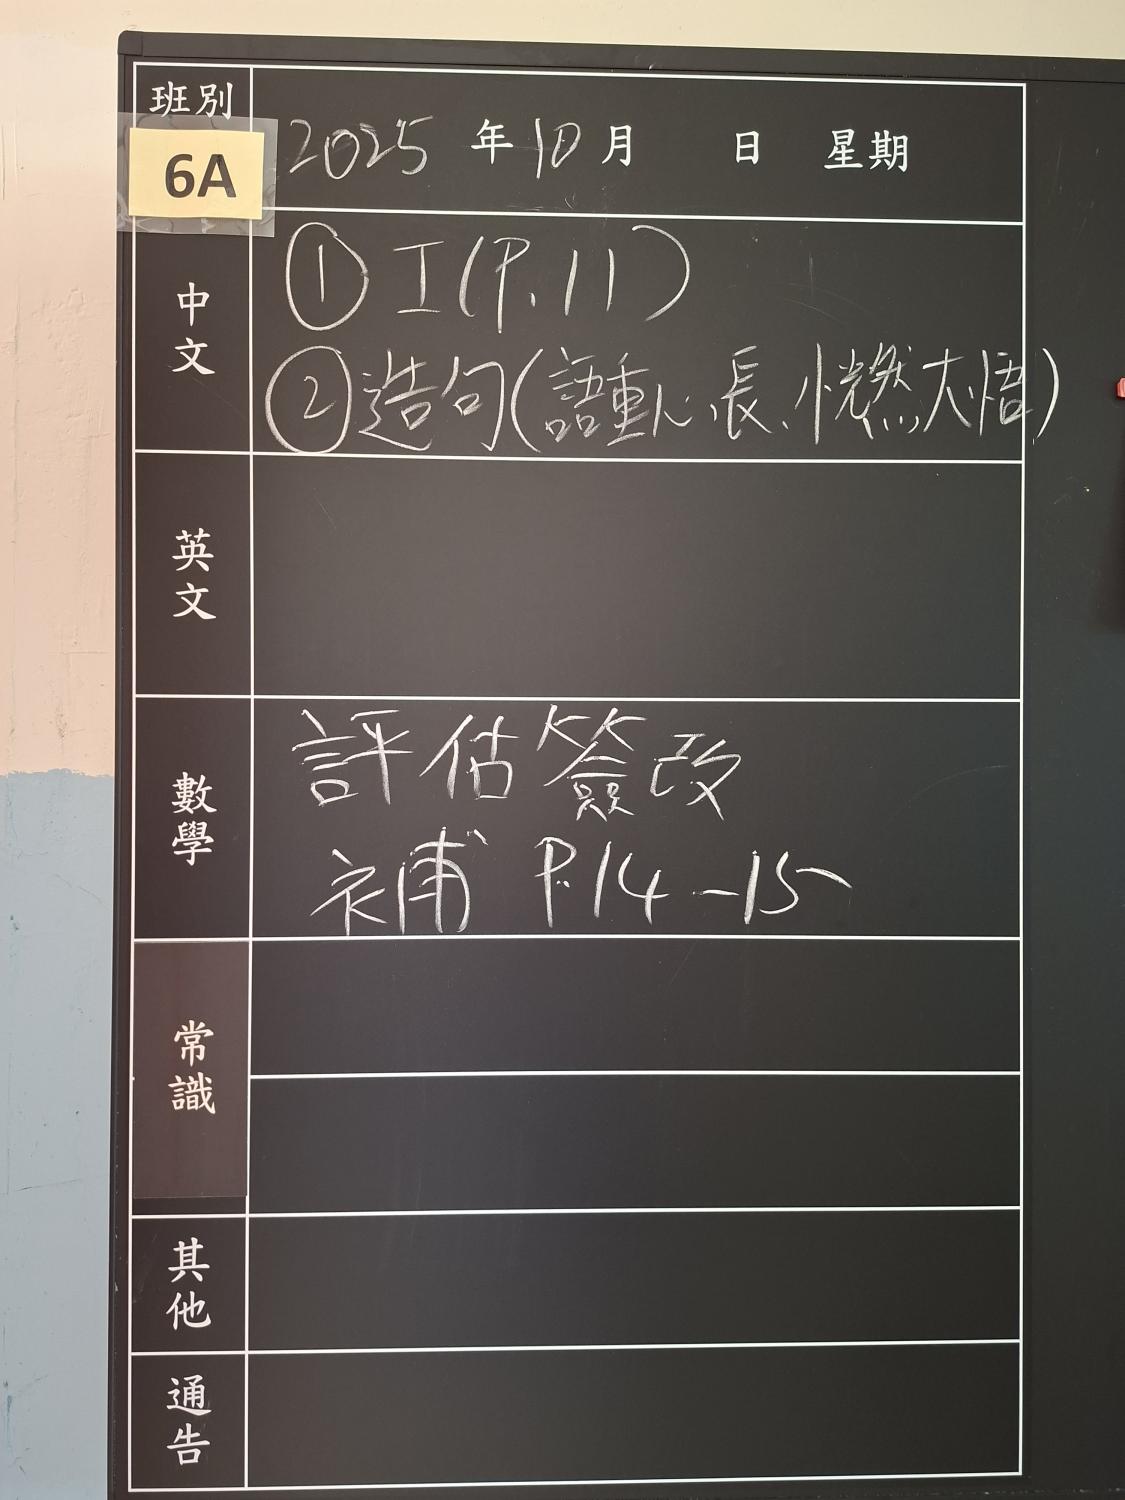 班別
6A
2025 年 10 月 日 星期
中文
① 工(P.11)
② 造句(語重心長、恍然大悟)
英文
數學
評估簽改
補 P.14-15
常識
其他
通告